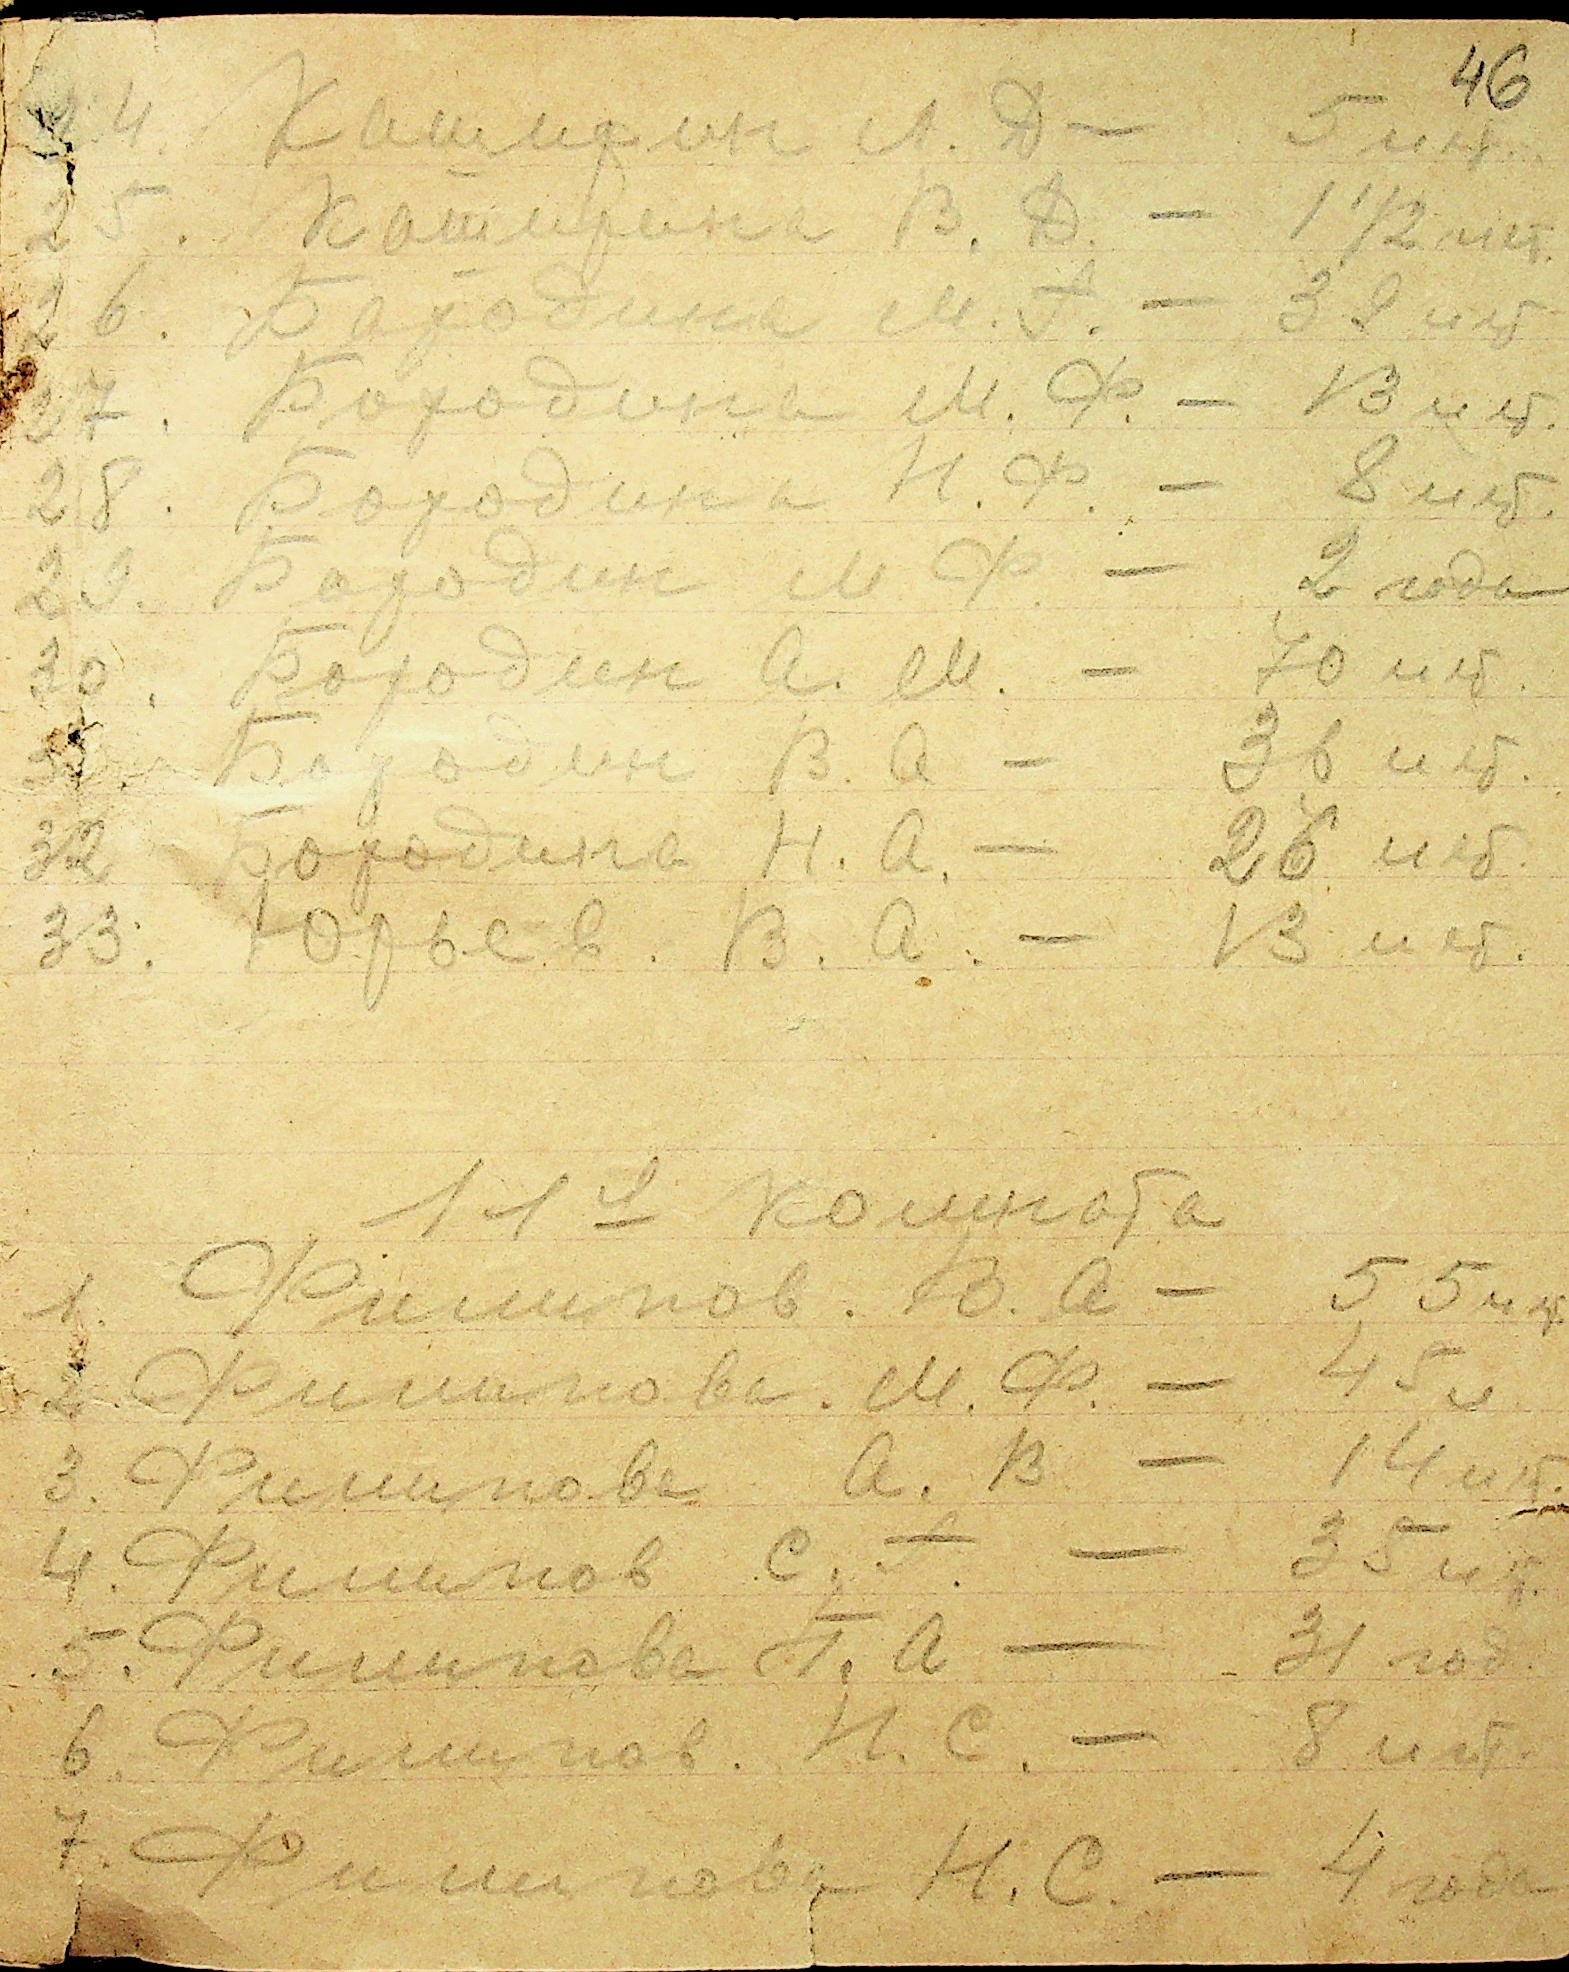 46
24. Каширин А. Д — 5 лет.
25. Каширина В. Д. — 1 1/2 лет.
26. Бородина М. Г. — 38 лет
27. Бородина М. Ф. — 13 лет.
28. Бородина Н. Ф. — 8 лет.
29. Бородин М Ф. — 2 года
30. Бородин А. М. — 70 лет.
31. Бородин В. А — 36 лет.
32 Бородина Н. А. — 26 лет.
33. Юрьев. В. А. — 13 лет.
11я комната
1. Филипов. В. А — 55 лет
2. Филипова. М. Ф. — 45 л
3. Филипова А. В — 14 лет.
4. Филипов С. Г. — 35 лет.
5. Филипова Т. А — 31 год.
6. Филипов. Н. С. — 8 лет.
7. Филипова Н. С. — 4 года